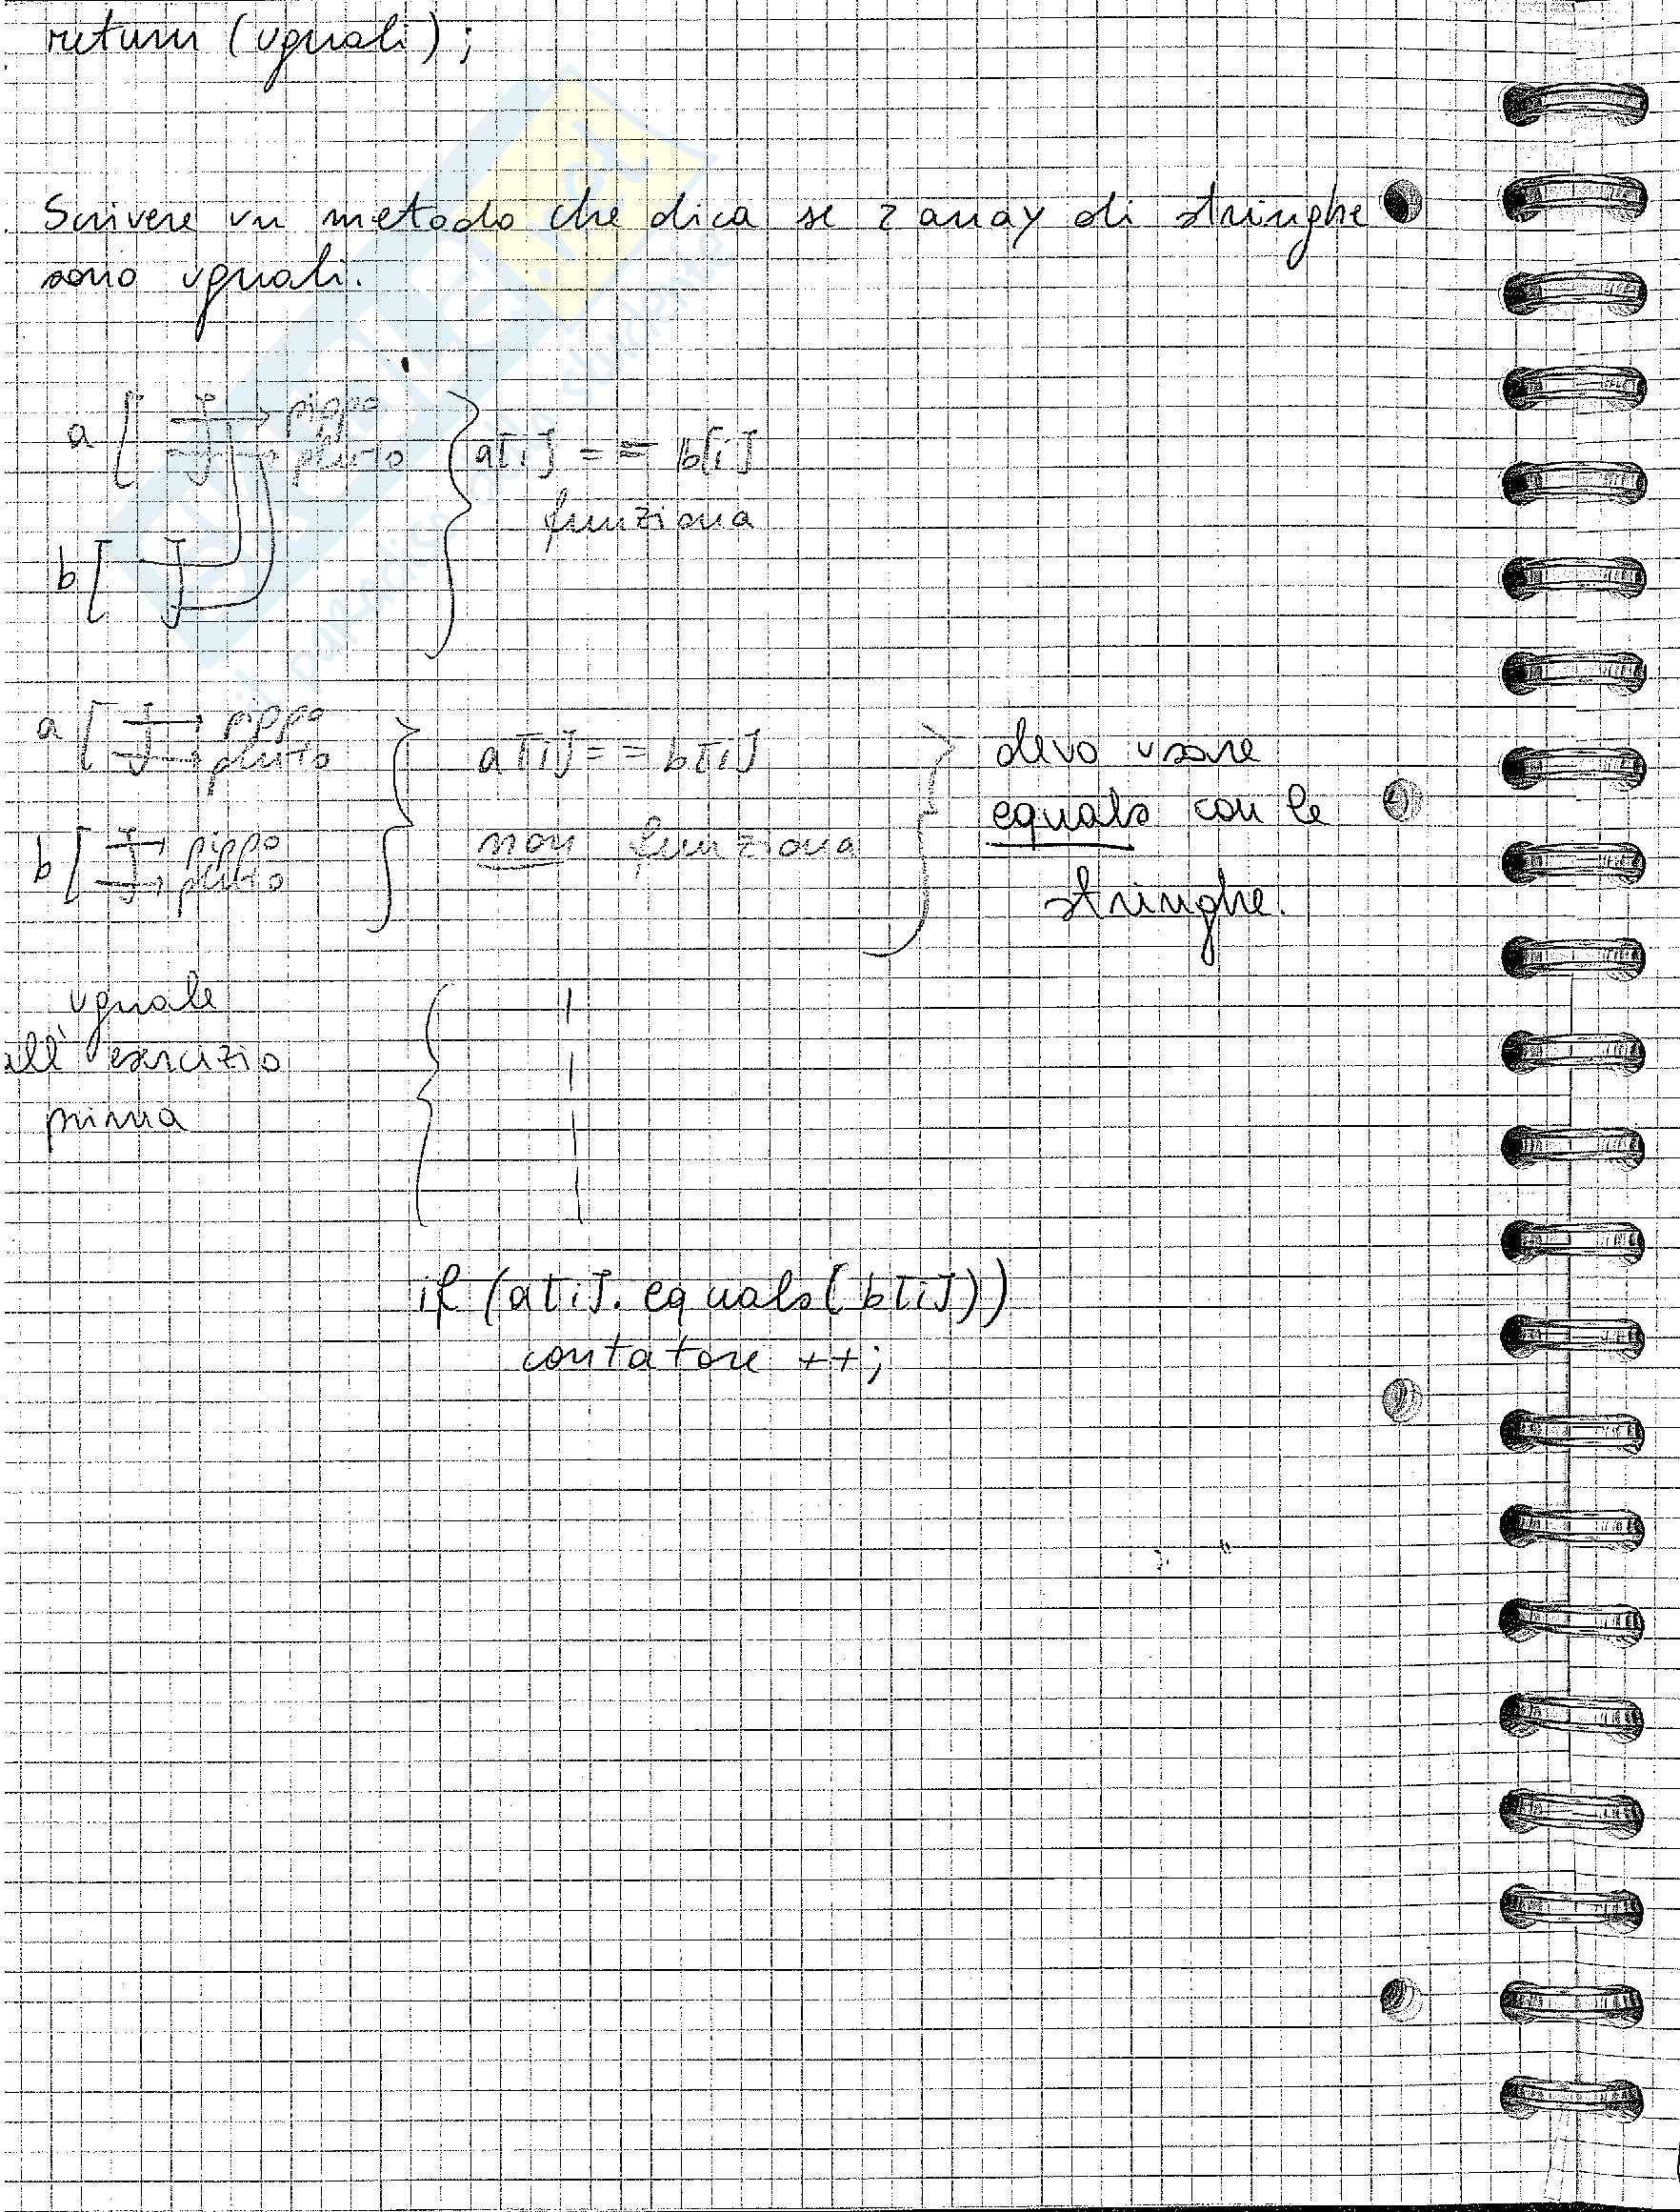 return (uguali);
Scrivere un metodo che dica se 2 array di stringhe
sono uguali.
a [ ] pippo
pluto
a[i] == b[i]
funziona
b [ ]
a [ ] pippo
pluto
a[i] == b[i]
devo usare
equals con le
stringhe.
b [ ] pippo
pluto
non funziona
uguale
all'esercizio
prima
if (a[i].equals(b[i]))
contatore ++;
SKUOLA.net
il paradiso dello studente